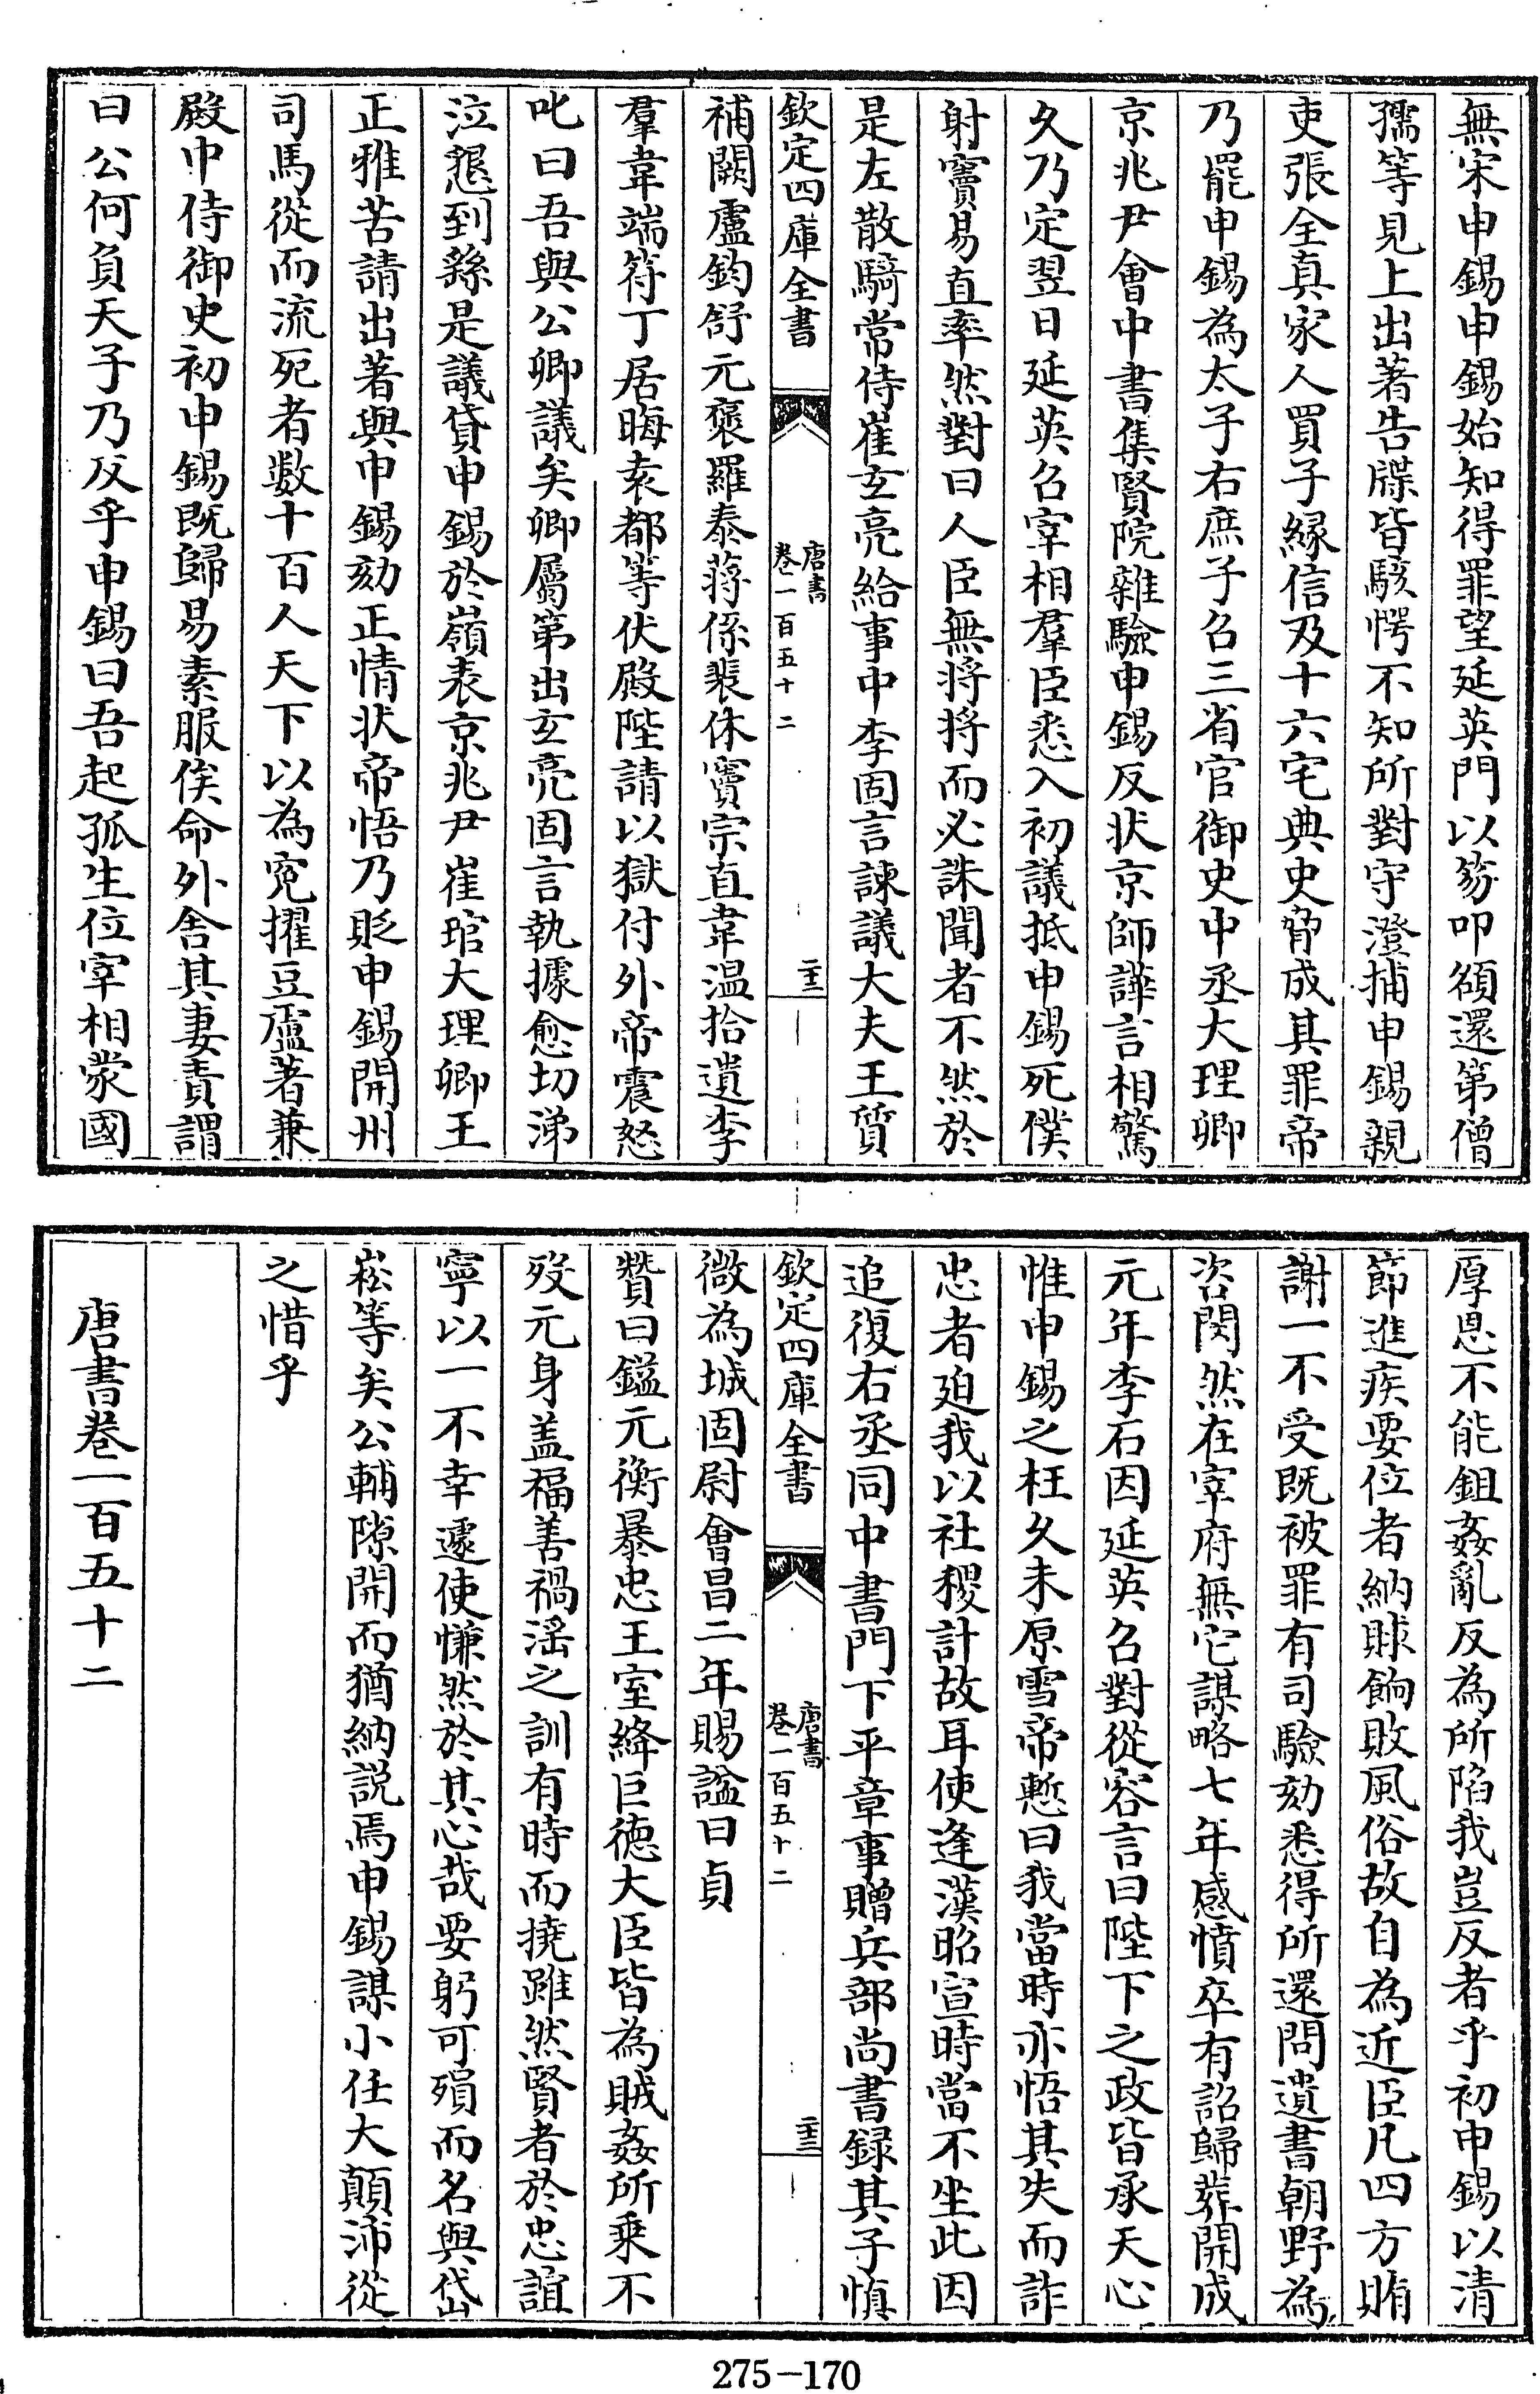 無宋申錫申錫始知得罪望延英門以笏叩額還第僧
孺等見上出著告牒皆駭愕不知所對守澄捕申錫親
吏張全真家人買子縁信及十六宅典史脅成其罪帝
乃罷申錫為太子右庶子召三省官御史中丞大理卿
京兆尹會中書集賢院雜驗申錫反状京師譁言相驚
久乃定翌日延英召宰相羣臣悉入初議抵申錫死僕
射竇易直率然對曰人臣無将将而必誅聞者不然於
是左散騎常侍崔玄亮給事中李固言諫議大夫王質
欽定四庫全書
唐書
卷一百五十二
二十三
補闕盧鈞舒元褒羅泰蔣係裴休竇宗直韋温拾遺李
羣韋端符丁居晦袁都等伏殿陛請以獄付外帝震怒
叱曰吾與公卿議矣卿屬第出玄亮固言執據愈切涕
泣懇到繇是議貸申錫於嶺表京兆尹崔琯大理卿王
正雅苦請出著與申錫劾正情状帝悟乃貶申錫開州
司馬從而流死者數十百人天下以為寃擢豆盧著兼
殿中侍御史初申錫既歸易素服俟命外舍其妻責謂
曰公何負天子乃反乎申錫曰吾起孤生位宰相蒙國
厚恩不能鉏姦亂反為所陷我豈反者乎初申錫以清
節進疾要位者納賕餉敗風俗故自為近臣凡四方賄
謝一不受既被罪有司驗劾悉得所還問遺書朝野為
咨閔然在宰府無它謀略七年感憤卒有詔歸葬開成
元年李石因延英召對從容言曰陛下之政皆承天心
惟申錫之枉久未原雪帝慙曰我當時亦悟其失而詐
忠者迫我以社稷計故耳使逢漢昭宣時當不坐此因
追復右丞同中書門下平章事贈兵部尚書録其子慎
欽定四庫全書
唐書
卷一百五十二
二十三
微為城固尉會昌二年賜諡曰貞
贊曰鎰元衡暴忠王室絳巨德大臣皆為賊姦所乗不
歿元身盖福善禍淫之訓有時而撓雖然賢者於忠誼
寧以一不幸遽使慊然於其心哉要躬可殞而名與岱
崧等矣公輔隙開而猶納説焉申錫謀小任大顛沛從
之惜乎
唐書卷一百五十二
275-170